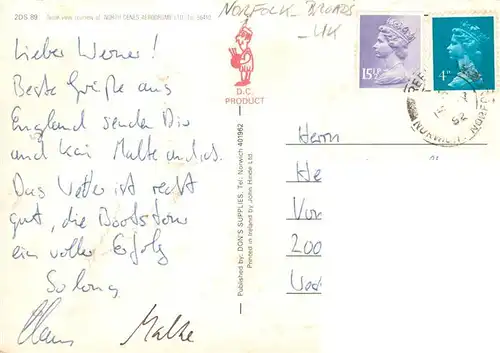 2DS 89
by courtesy of NORTH DENES AERODROME LTD. Tel
NORFOLK BROADS
- UK
Lieber Werner!
Beste Grüße aus
England senden Dir
und Kai Malte und ich.
Das Wetter ist recht
gut, die Bootstour
ein voller Erfolg
So long
Claus Malte
D.C.
PRODUCT
Published by: DON'S SUPPLIES. Tel: Norwich 401962
Printed in Ireland by John Hinde Ltd.
15½P
4P
NORWICH NORFOLK
82
Herrn
He
Vo
200